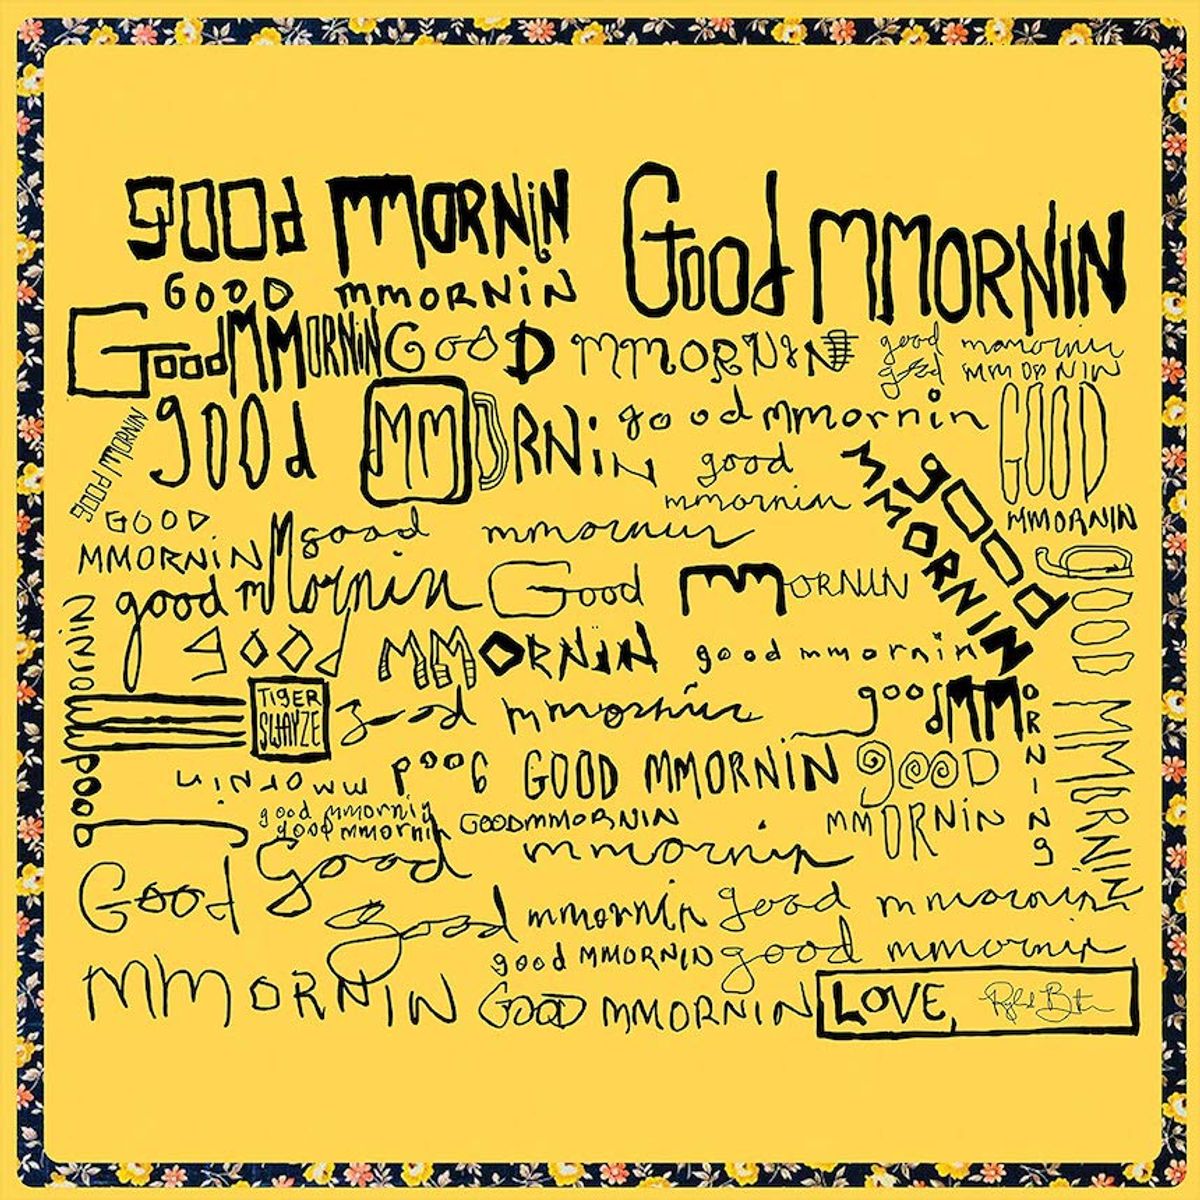 good mORNiN Good MMORNIN
GOOD mmORNiN
Good MMORNiN Good mmORNIN good
good MMORNiN good mmornin GOOD
good MORNIN
good
mmornin
GOOD
MMORNiN
MMORNIN
good
good mMornin Good MMORNIN
good MMORNIN
good MMORNiN good mmornin
good MMORNING
good mmornin
TiGER
SWAYZE
good mmornin
good mmornin GOOD MMORNiN gooD
MMORNiN
good MMORNIN
good mmornin
good mmornin GOODMMORNiN
good mmornin
Good
MMORNIN
good mmornin good mmornin
good MMORNIN good mmornin
GOOD MMORNIN LOVE,